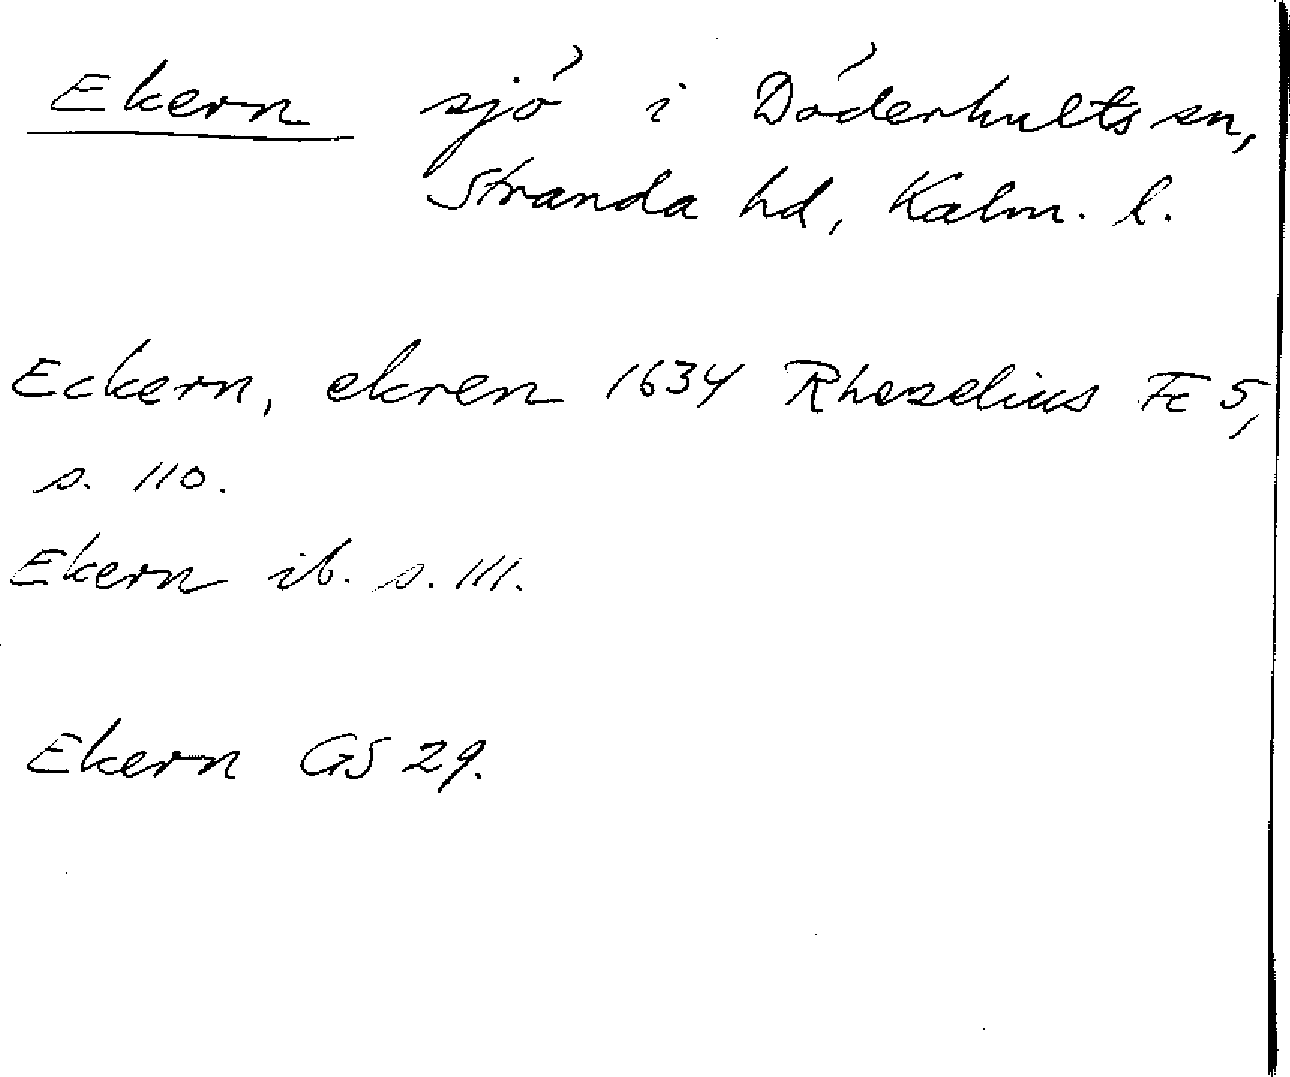 Ekern sjö i Döderhults sn,
Stranda hd, Kalm. l.
Eckern, ekren 1634 Rhezelius Fc 5,
s. 110.
Ekern ib. s. 111.
Ekern GS 29.